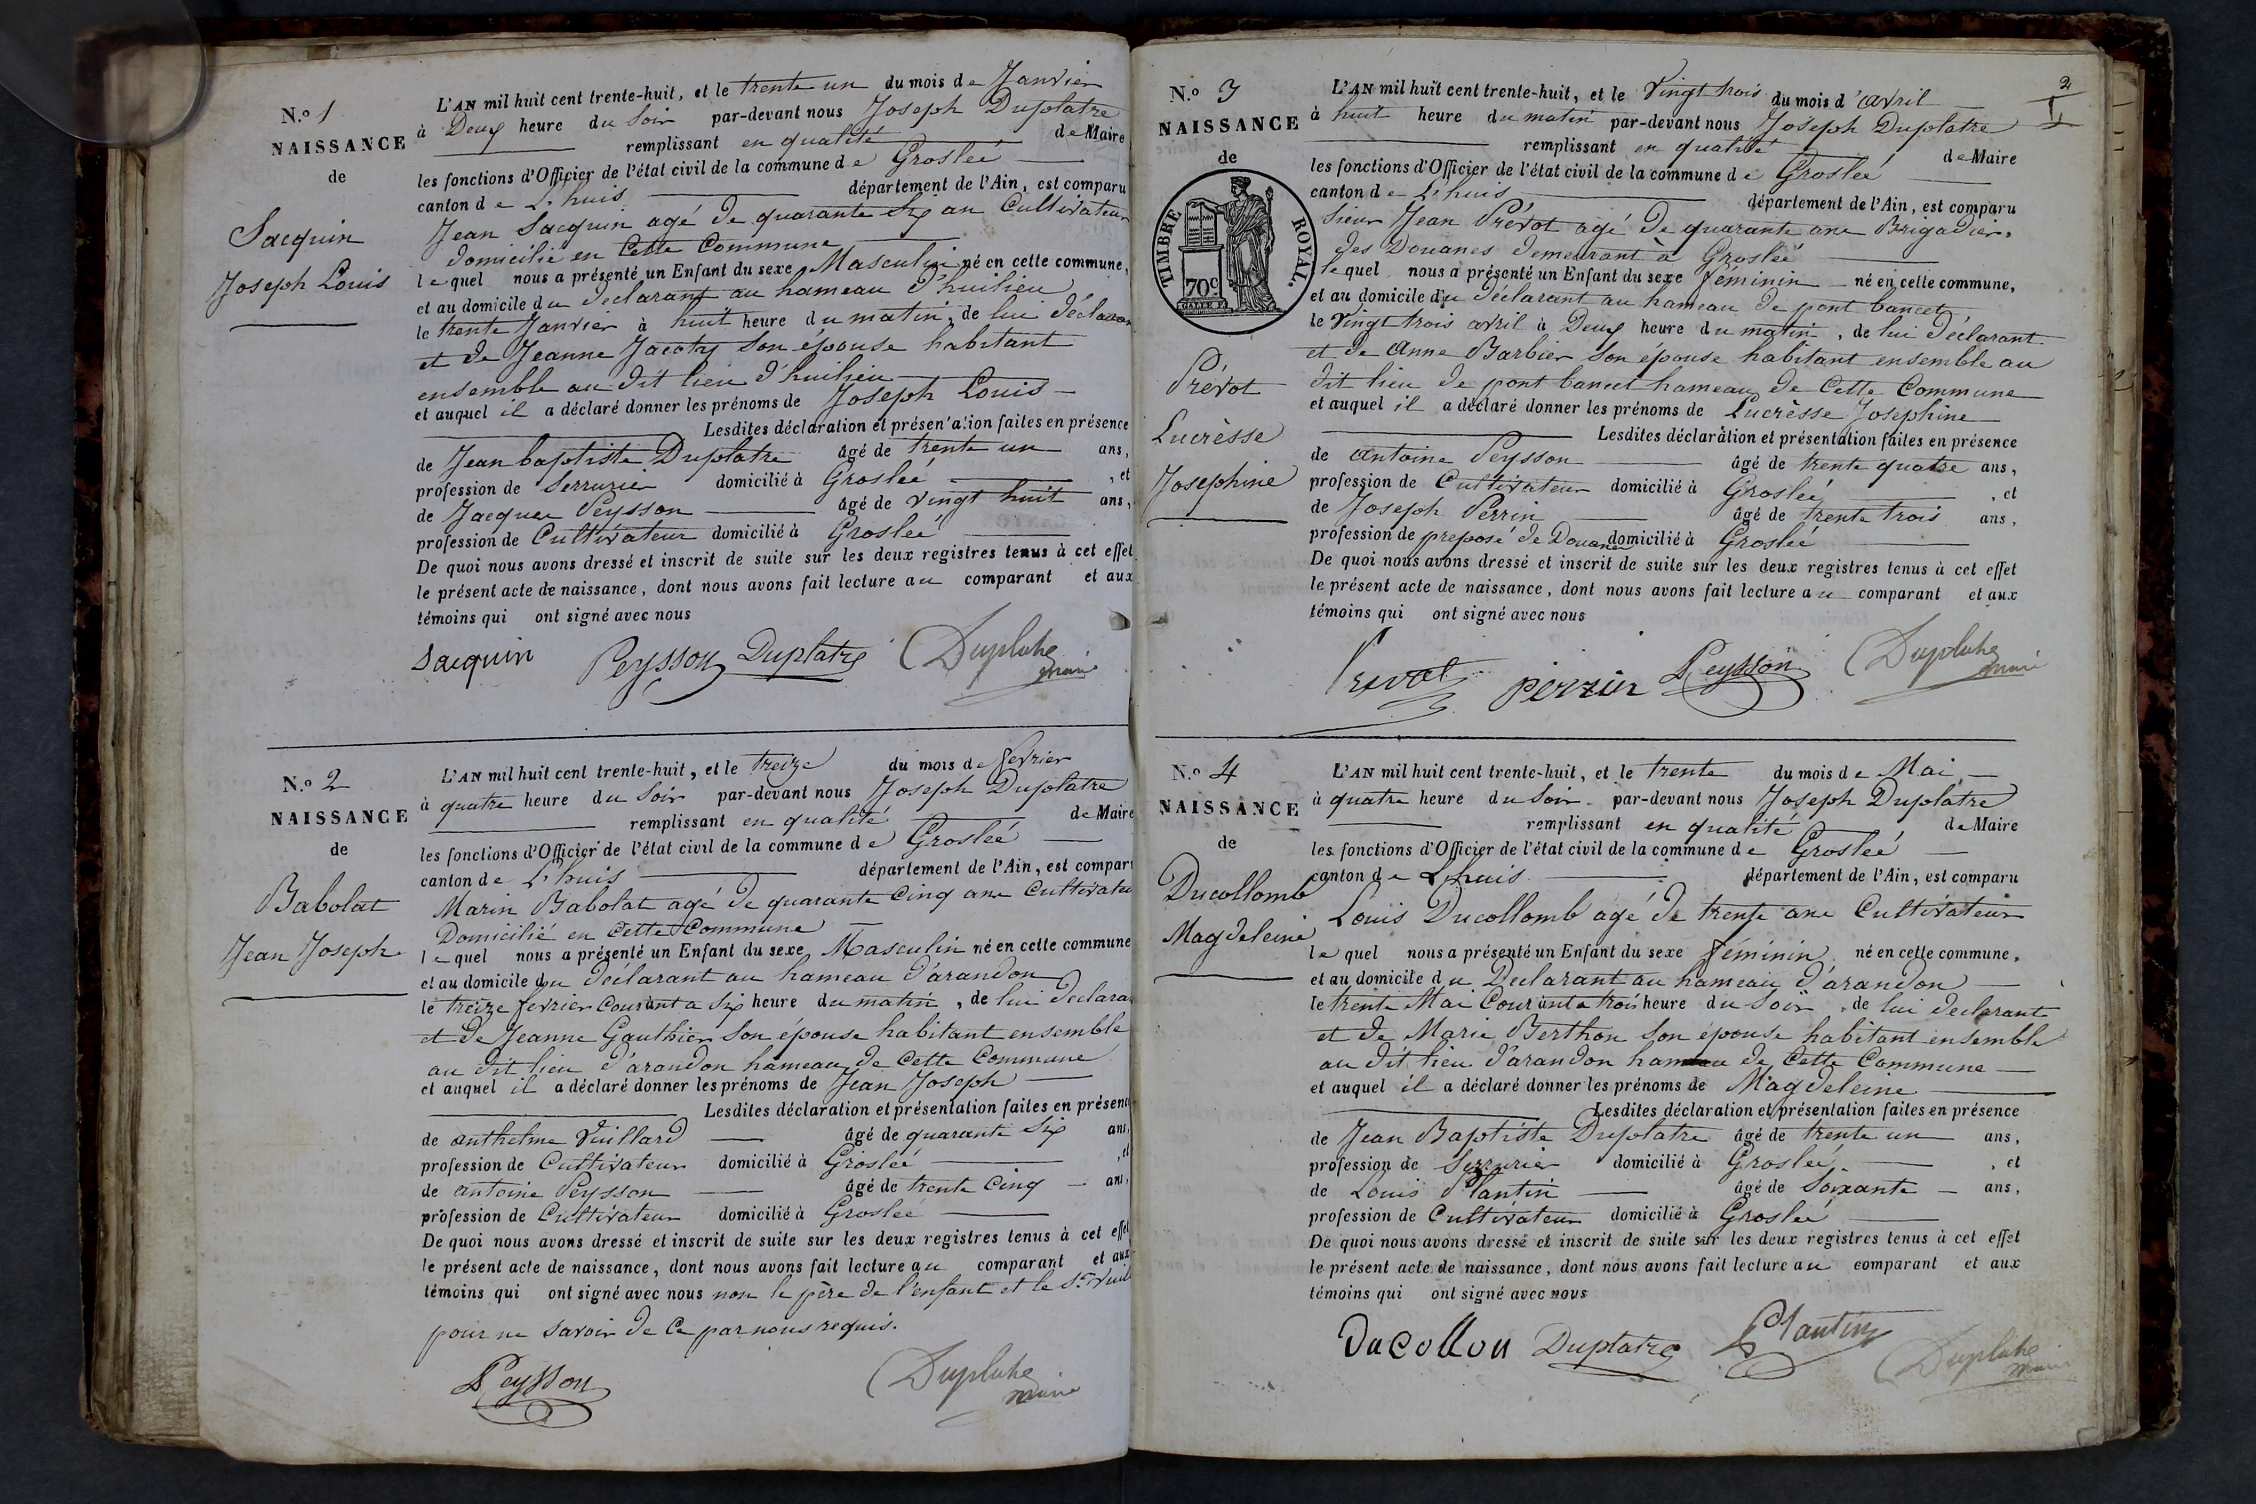 N.o 1
NAISSANCE
de
Sacquin
Joseph Louis
L'AN mil huit cent trente-huit, et le trente un du mois de Janvier
à Deux heure du Soir par-devant nous Joseph Duplatre
remplissant en qualité de Maire
les fonctions d'Officier de l'état civil de la commune de Groslée
canton de L'huis département de l'Ain, est comparu
Jean Sacquin agé de quarante Six an Cultivateur
domicilié en Cette Commune
lequel nous a présenté un Enfant du sexe Masculin né en cette commune,
et au domicile du déclarant au hameau d'huilieu
le trente Janvier à huit heure du matin, de lui déclarant
et de Jeanne Jacoty Son épouse habitant
ensemble au dit lieu d'huilieu
et auquel il a déclaré donner les prénoms de Joseph Louis
Lesdites déclaration et présentation faites en présence
de Jean baptiste Duplatre âgé de trente un ans,
profession de Serrurier domicilié à Groslée , et
de Jacques Peysson âgé de vingt huit ans,
profession de Cultivateur domicilié à Groslée
De quoi nous avons dressé et inscrit de suite sur les deux registres tenus à cet effet
le présent acte de naissance, dont nous avons fait lecture au comparant et aux
témoins qui ont signé avec nous
Sacquin Peysson Duplatre Duplatre
maire
N.o 2
NAISSANCE
de
Babolat
Jean Joseph
L'AN mil huit cent trente-huit, et le treize du mois de fevrier
à quatre heure du Soir par-devant nous Joseph Duplatre
remplissant en qualité de Maire
les fonctions d'Officier de l'état civil de la commune de Groslée
canton de L'huis département de l'Ain, est compar
Marin Babolat agé de quarante Cinq ans Cultivateu
Domicilié en Cette Commune
lequel nous a présenté un Enfant du sexe Masculin né en cette commune
et au domicile du déclarant au hameau d'arandon
le treize fevrier Courant a Six heure du matin, de lui declara
et de Jeanne Gauthier Son épouse habitant ensemble
au dit lieu d'arandon hameau de Cette Commune
et auquel il a déclaré donner les prénoms de Jean Joseph
Lesdites déclaration et présentation faites en présenc
de anthelme Vuillard âgé de quarante Six ans,
profession de Cultivateur domicilié à Groslée , et
de antoine Peysson âgé de trente Cinq ans,
profession de Cultivateur domicilié à Groslee
De quoi nous avons dressé et inscrit de suite sur les deux registres tenus à cet effet
le présent acte de naissance, dont nous avons fait lecture au comparant et aux
témoins qui ont signé avec nous non le père de l'enfant et le Sr Vuil
pour ne Savoir de Ce par nous requis.
Peysson Duplatre
maire
2
N.o 3
NAISSANCE
de
TIMBRE ROYAL.
70c
Prévot
Lucrèsse
Josephine
L'AN mil huit cent trente-huit, et le Vingt trois du mois d'avril
à huit heure du matin par-devant nous Joseph Duplatre
remplissant en qualité de Maire
les fonctions d'Officier de l'état civil de la commune de Groslée
canton de L'huis département de l'Ain, est comparu
Sieur Jean Prévot agé de quarante ans Brigadier
des Douanes demeurant à Groslée
lequel nous a présenté un Enfant du sexe féminin né en cette commune,
et au domicile du déclarant au hameau de pont bancet
le Vingt trois avril à Deux heure du matin, de lui déclarant
et de anne Barbier Son épouse habitant ensemble au
dit lieu de pont bancet hameau de Cette Commune
et auquel il a déclaré donner les prénoms de Lucrèsse Josephine
Lesdites déclaration et présentation faites en présence
de antoine Peysson âgé de trente quatre ans,
profession de Cultivateur domicilié à Groslée , et
de Joseph Perrin âgé de trente trois ans,
profession de preposé de Douanes domicilié à Groslée
De quoi nous avons dressé et inscrit de suite sur les deux registres tenus à cet effet
le présent acte de naissance, dont nous avons fait lecture au comparant et aux
témoins qui ont signé avec nous
Prevot perrin Peysson Duplatre
maire
N.o 4
NAISSANCE
de
Ducollomb
Magdeleine
L'AN mil huit cent trente-huit, et le trente du mois de Mai
à quatre heure du Soir par-devant nous Joseph Duplatre
remplissant en qualité de Maire
les fonctions d'Officier de l'état civil de la commune de Groslée
canton de Lhuis département de l'Ain, est comparu
Louis Ducollomb agé de trente ans Cultivateur
lequel nous a présenté un Enfant du sexe féminin né en cette commune,
et au domicile du Declarant au hameau d'arandon
le trente Mai Courant a trois heure du Soir, de lui declarant
et de Marie Berthon Son épouse habitant ensemble
au dit lieu d'arandon hameau de Cette Commune
et auquel il a déclaré donner les prénoms de Magdeleine
Lesdites déclaration et présentation faites en présence
de Jean Baptiste Duplatre âgé de trente un ans,
profession de Serrurier domicilié à Groslée , et
de Louis Plantin âgé de Soixante ans,
profession de Cultivateur domicilié à Groslée
De quoi nous avons dressé et inscrit de suite sur les deux registres tenus à cet effet
le présent acte de naissance, dont nous avons fait lecture au comparant et aux
témoins qui ont signé avec nous
Ducollon Duplatre Plantin Duplatre
maire